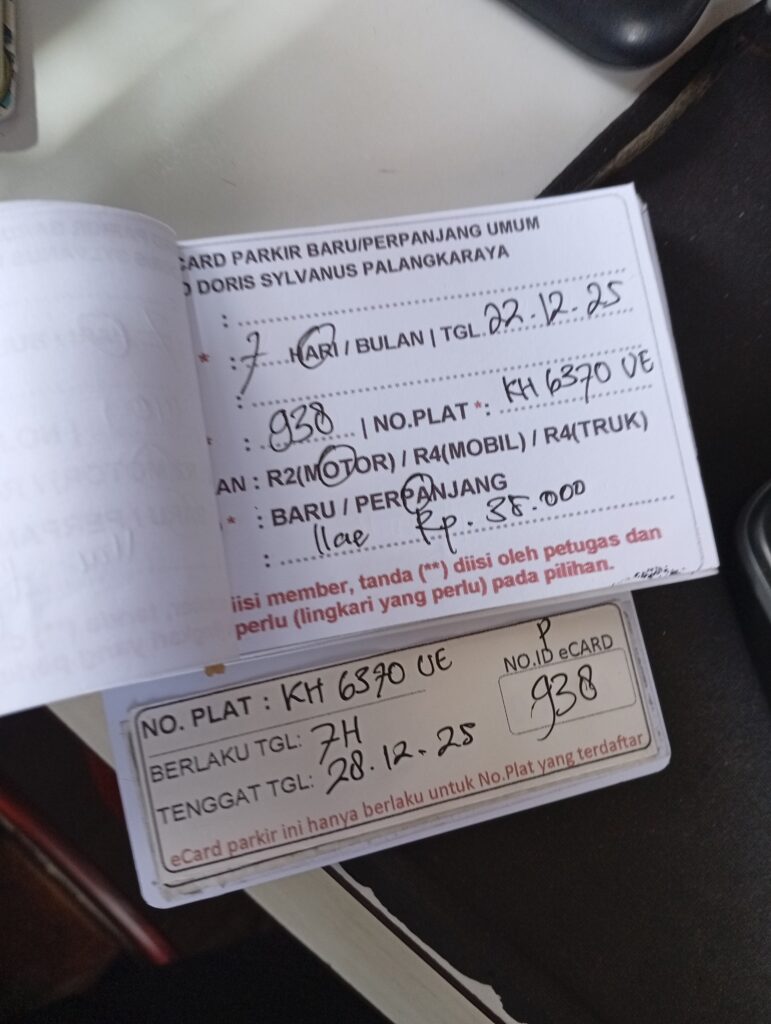 CARD PARKIR BARU/PERPANJANG UMUM
D DORIS SYLVANUS PALANGKARAYA
: 
* : 7 HARI / BULAN | TGL. 22.12.25
:
* : 938 | NO.PLAT *: KH 6370 UE
AN : R2(MOTOR) / R4(MOBIL) / R4(TRUK)
* : BARU / PERPANJANG
: Rp. 38.000
iisi member, tanda (**) diisi oleh petugas dan
perlu (lingkari yang perlu) pada pilihan.
NO. PLAT : KH 6370 UE
BERLAKU TGL: 7H
TENGGAT TGL: 28.12.25
P
NO.ID eCARD
938
eCard parkir ini hanya berlaku untuk No.Plat yang terdaftar